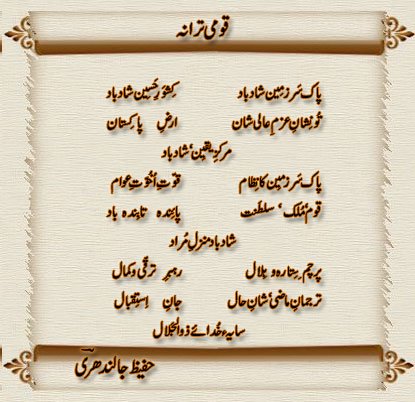 قومی ترانہ
پاک سَرزمین شادباد کِشوَرِ حَسِین شادباد
تُو نِشانِ عزمِ عالی شان ارضِ پاکِستان
مرکزِ یقین شادباد
پاک سَرزمین کا نِظام قوّتِ اُخُوّتِ عوام
قوم، مُلک، سلطنَت پائِندہ تابِندہ باد
شادباد منزلِ مُراد
پرچمِ سِتارہ و ہلال رہبرِ ترقّی و کمال
ترجمانِ ماضی، شانِ حال جانِ اِستِقبال
سایہءِ خُدائے ذوالجَلال
حفیظ جالندھریؒ